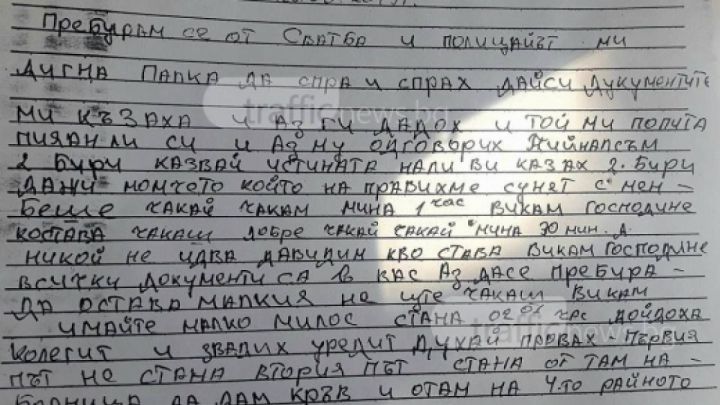 Пребурам се от Сватба и полицайът ми
дигна Палка да спра и спрах дайси дукументите
ми къзаха и аз ги дадох и той ми попита
пиян ли си и аз му одговорих Нийнапсъм
2 Бири казвай истината нали ви казах 2. Бири
дажи момчето който на правихме сунет с мен –
беше чакай чакам мина 1 час викам Господине
костава чакаш добре чакай чакай мина 30 мин. д
никой не идва давидин кво става викам Господине
всички документи са в вас Аз дасе пребира –
да остава малкия не ште чакаш викам
имайте малко милос стана 02 01 час дойдоха
колегит и звадих уредит духай правах – първия
път не стана втория път стана от там на –
Болница да дам кръв и отам на 4то районото
trafficnews.bg
trafficnews.bg